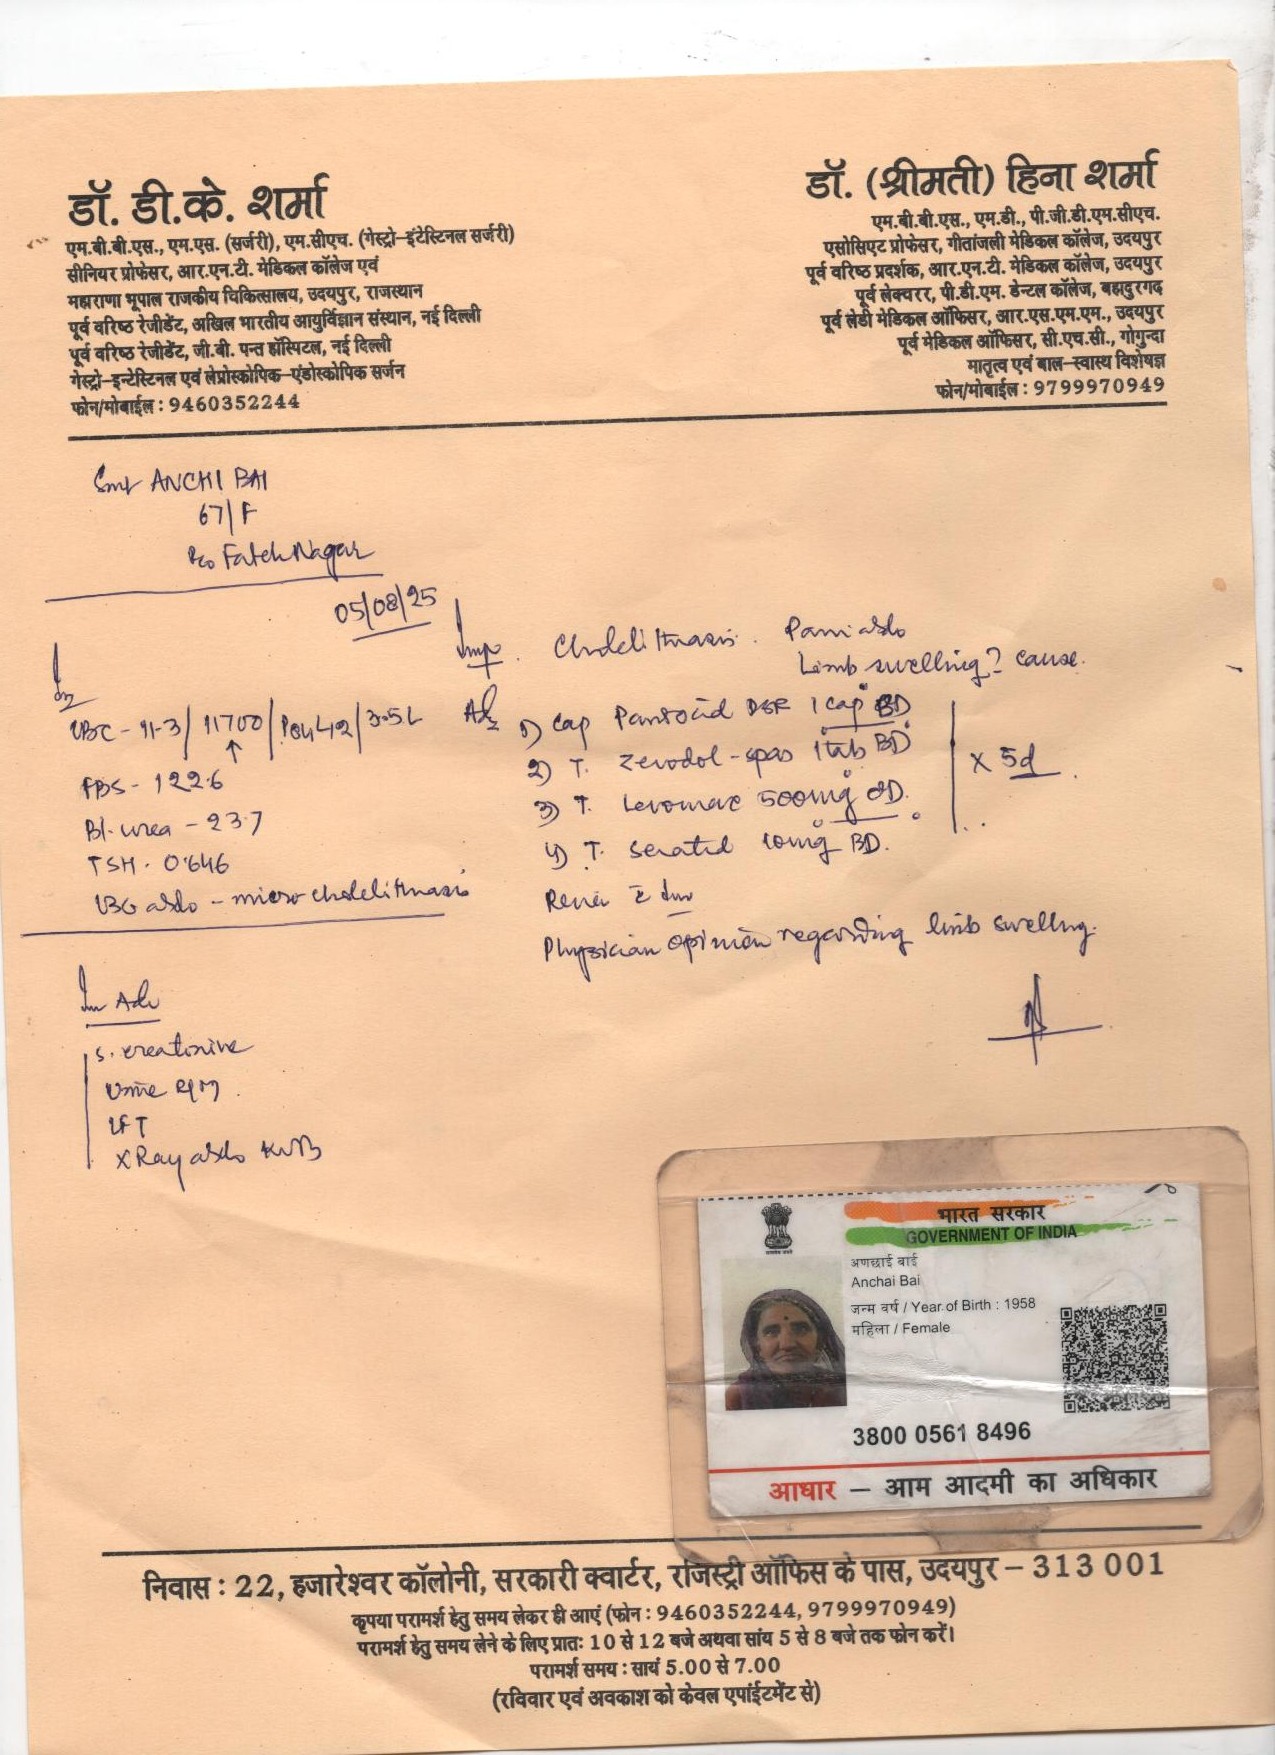 डॉ. डी.के. शर्मा
एम.बी.बी.एस., एम.एस. (सर्जरी), एम.सीएच. (गेस्ट्रो-इंटेस्टिनल सर्जरी)
सीनियर प्रोफेसर, आर.एन.टी. मेडिकल कॉलेज एवं
महाराणा भूपाल राजकीय चिकित्सालय, उदयपुर, राजस्थान
पूर्व वरिष्ठ रेजीडेंट, अखिल भारतीय आयुर्विज्ञान संस्थान, नई दिल्ली
पूर्व वरिष्ठ रेजीडेंट, जी.बी. पन्त हॉस्पिटल, नई दिल्ली
गेस्ट्रो-इन्टेस्टिनल एवं लेप्रोस्कोपिक-एंडोस्कोपिक सर्जन
फोन/मोबाईल : 9460352244
डॉ. (श्रीमती) हिना शर्मा
एम.बी.बी.एस., एम.डी., पी.जी.डी.एम.सीएच.
एसोसिएट प्रोफेसर, गीतांजली मेडिकल कॉलेज, उदयपुर
पूर्व वरिष्ठ प्रदर्शक, आर.एन.टी. मेडिकल कॉलेज, उदयपुर
पूर्व लेक्चरर, पी.डी.एम. डेन्टल कॉलेज, बहादुरगढ़
पूर्व लेडी मेडिकल ऑफिसर, आर.एस.एम.एम., उदयपुर
पूर्व मेडिकल ऑफिसर, सी.एच.सी., गोगुन्दा
मातृत्व एवं बाल-स्वास्थ विशेषज्ञ
फोन/मोबाईल : 9799970949
Smt ANCHI BAI
67/F
R/o Fateh Nagar
05/08/25
Inv
11.3/11700/P84L12/3.5L
FBS - 122.6
Bl. urea - 23.7
TSH - 0.646
USG abdo - micro cholelithiasis
Inv Adv
S. creatinine
Urine R/M
LFT
X Ray abdo KUB
Imp. Cholelithiasis. Pain abdo
Limb swelling? cause.
Adv 1) Cap Pantocid DSR 1 cap BD
2) T. Zerodol-spas 1 tab BD
3) T. Levomac 500mg OD.
4) T. 10mg BD.
x 5d
Review
Physician opinion regarding limb swelling.
भारत सरकार
GOVERNMENT OF INDIA
अणछाई बाई
Anchai Bai
जन्म वर्ष / Year of Birth : 1958
महिला / Female
3800 0561 8496
आधार – आम आदमी का अधिकार
निवास : 22, हजारेश्वर कॉलोनी, सरकारी क्वार्टर, रजिस्ट्री ऑफिस के पास, उदयपुर – 313 001
कृपया परामर्श हेतु समय लेकर ही आएं (फोन : 9460352244, 9799970949)
परामर्श हेतु समय लेने के लिए प्रातः 10 से 12 बजे अथवा सांय 5 से 8 बजे तक फोन करें।
परामर्श समय : सायं 5.00 से 7.00
(रविवार एवं अवकाश को केवल एपांईटमेंट से)